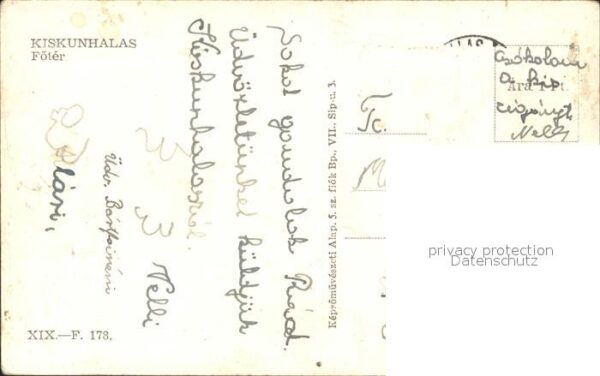 KISKUNHALAS
Főtér
Sokat gondolok Rád.
Üdvözletünket küldjük
Kiskunhalasról.
Nelli
Üdv.
XIX.—F. 173.
Képzőművészeti Alap. 5. sz. fiók Bp., VII., Sip-u. 3.
Csókolom
a kis
cigányt
Nelli
Ára 1 Ft.
privacy protection
Datenschutz